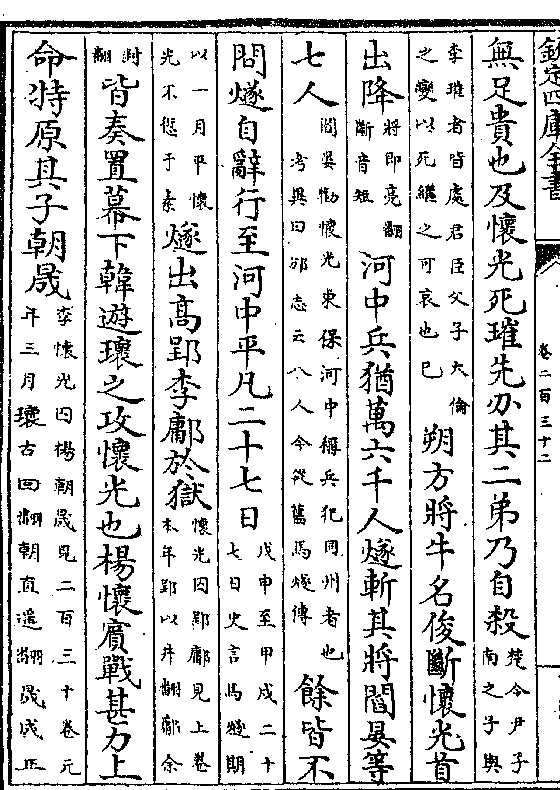 欽定四庫全書
卷二百三十二
無足貴也及懷光死璀先刃其二弟乃自殺楚令尹子南之子與
李璀者皆處君臣父子大倫之變以死繼之可哀也已朔方將牛名俊斷懷光首
出降將即亮翻斷音短河中兵猶萬六千人燧斬其將閻晏等
七人閻晏勸懷光東保河中稱兵犯同州者也考異曰邠志云八人今從舊馬燧傳餘皆不
問燧自辭行至河中平凡二十七日戊申至甲戌二十七日史言馬燧期
以一月平懷光不愆于素燧出高郢李鄘於獄懷光囚郢鄘見上卷本年郢以井翻鄘余
封翻皆奏置幕下韓遊瓌之攻懷光也楊懷賓戰甚力上
命特原其子朝晟李懷光囚楊朝晟見二百三十卷元年三月瓌古回翻朝直遥翻晟成正